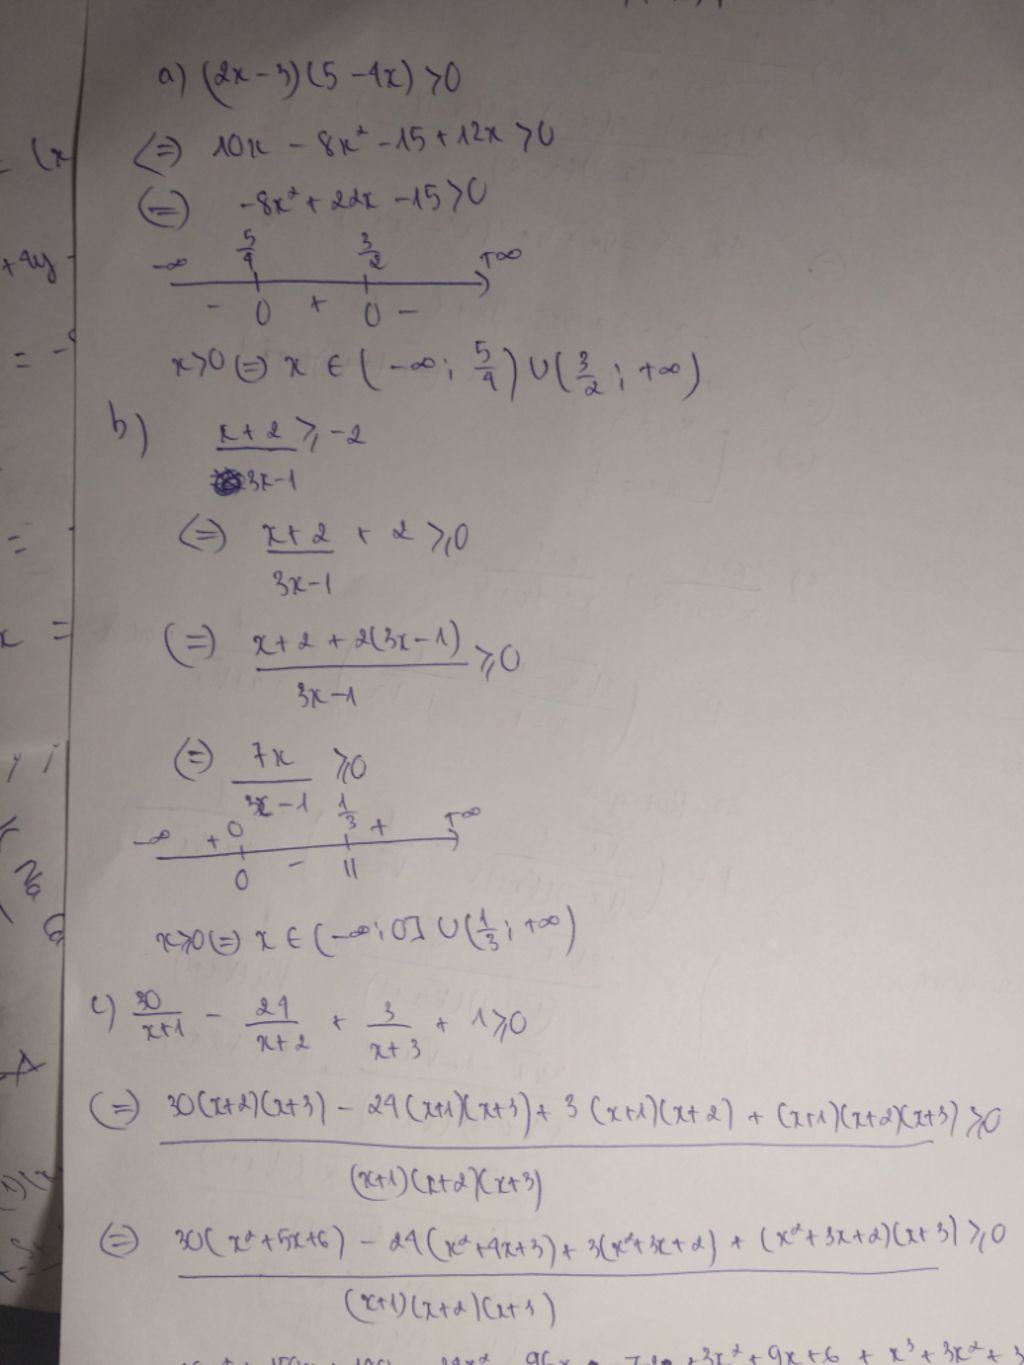 a) (2x-3)(5-4x)>0
(=) 10x - 8x² - 15 + 12x > 0
(=) -8x² + 22x - 15 > 0
-∞ 5/4 3/2 +∞
- 0 + 0 -
x>0 (=) x ∈ (-∞; 5/4) ∪ (3/2; +∞)
b) (x+2)/(3x-1) ≥ -2
(=) (x+2)/(3x-1) + 2 ≥ 0
(=) (x+2+2(3x-1))/(3x-1) ≥ 0
(=) 7x/(3x-1) ≥ 0
-∞ + 0 1/3 + +∞
0 - ||
x≥0 (=) x ∈ (-∞; 0] ∪ (1/3; +∞)
c) 30/(x+1) - 24/(x+2) + 3/(x+3) + 1 ≥ 0
(=) (30(x+2)(x+3) - 24(x+1)(x+3) + 3(x+1)(x+2) + (x+1)(x+2)(x+3))/((x+1)(x+2)(x+3)) ≥ 0
(=) (30(x²+5x+6) - 24(x²+4x+3) + 3(x²+3x+2) + (x²+3x+2)(x+3))/((x+1)(x+2)(x+3)) ≥ 0
+3x²+9x+6 + x³+3x²+